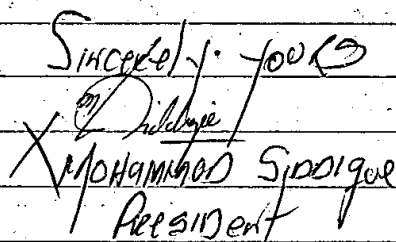 Sincerely. Yours
X MOHAMMAD SIDDIQUE
PRESIDENT